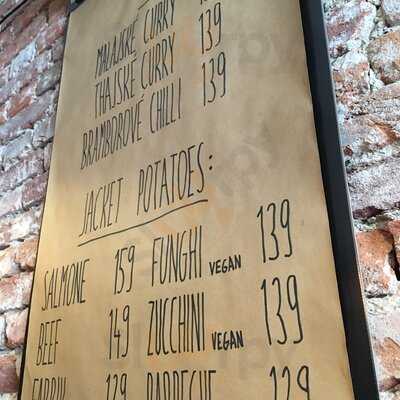 MALAJSKÉ CURRY
THAJSKÉ CURRY 139
BRAMBOROVÉ CHILLI 139
JACKET POTATOES:
SALMONE 159 FUNGHI VEGAN 139
BEEF 149 ZUCCHINI VEGAN 139
139 BARBECUE 139